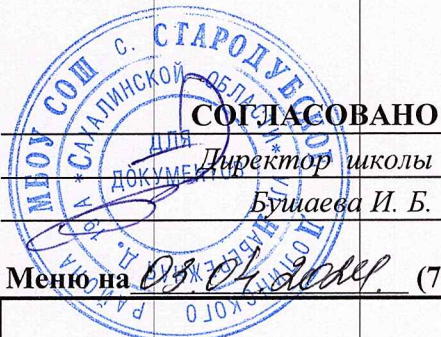 МБОУ СОШ с. СТАРОДУБСКОЕ ДОЛИНСКОГО РАЙОНА
САХАЛИНСКОЙ ОБЛАСТИ *
ДЛЯ
ДОКУМЕНТОВ
СОГЛАСОВАНО
Директор школы
Бушаева И. Б.
Меню на 03.04.2024. (7